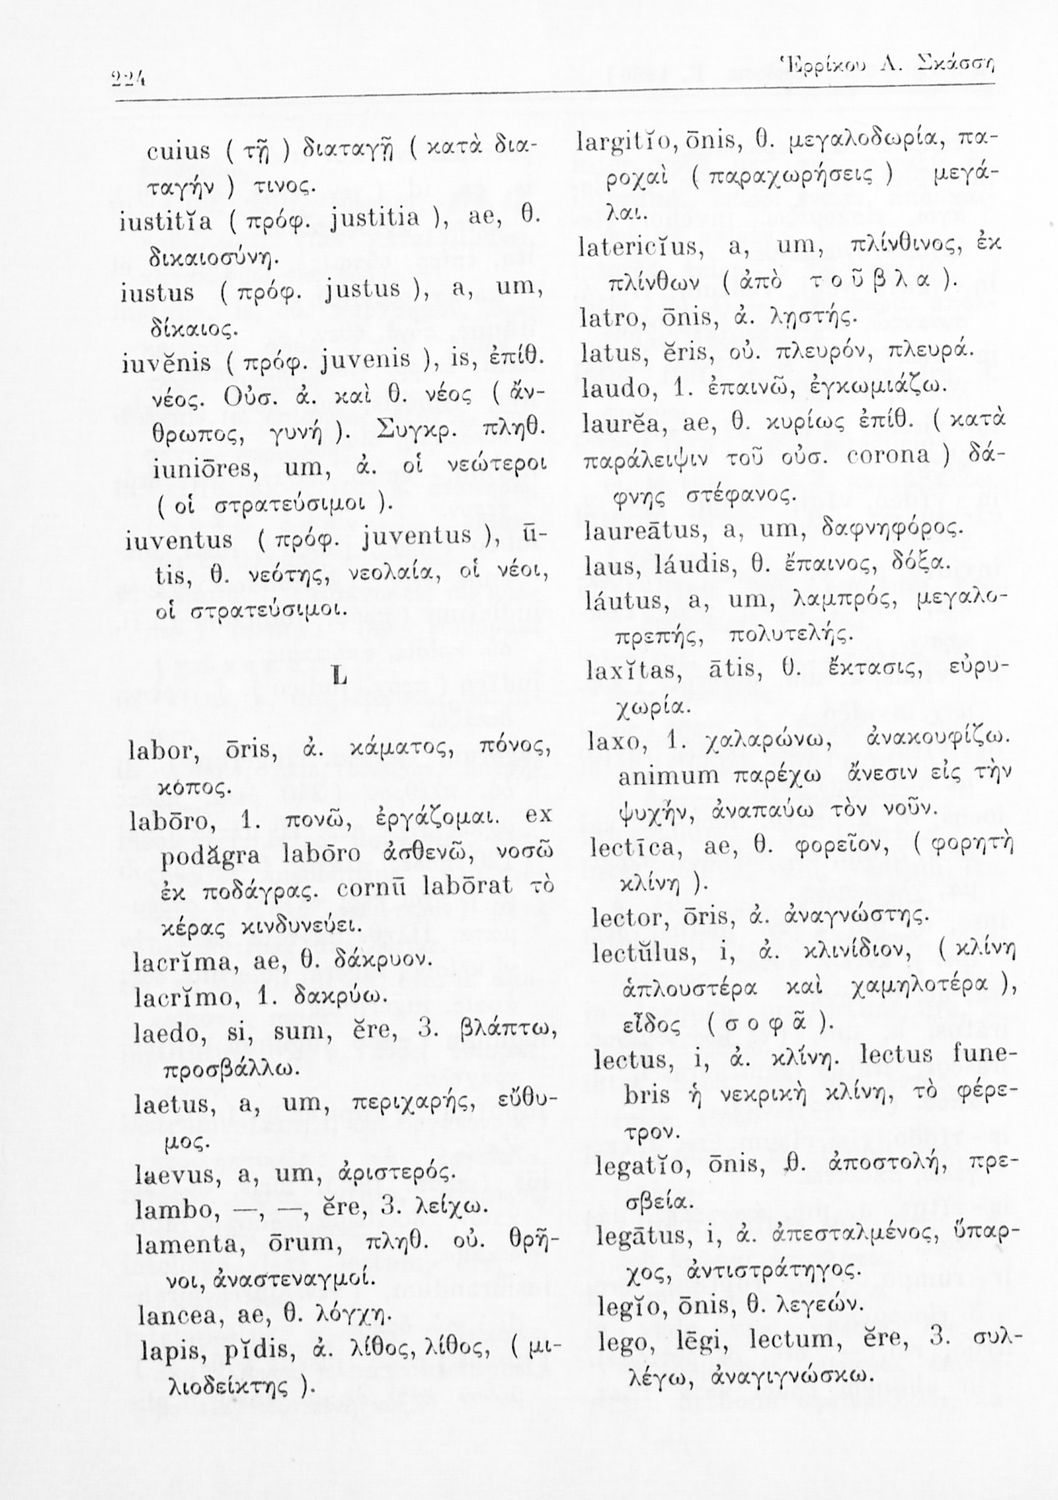 224
Ἑρρίκου Λ. Σκάσση
cuius ( τῇ ) διαταγῇ ( κατὰ δια-
ταγήν ) τινος.
iustitĭa ( πρόφ. justitia ), ae, θ.
δικαιοσύνη.
iustus ( πρόφ. justus ), a, um,
δίκαιος.
iuvĕnis ( πρόφ. juvenis ), is, ἐπίθ.
νέος. Οὐσ. ἀ. καὶ θ. νέος ( ἄν-
θρωπος, γυνή ). Συγκρ. πληθ.
iuniōres, um, ἀ. οἱ νεώτεροι
( οἱ στρατεύσιμοι ).
iuventus ( πρόφ. juventus ), ū-
tis, θ. νεότης, νεολαία, οἱ νέοι,
οἱ στρατεύσιμοι.
L
labor, ōris, ἀ. κάματος, πόνος,
κόπος.
labōro, 1. πονῶ, ἐργάζομαι. ex
podăgra labōro ἀσθενῶ, νοσῶ
ἐκ ποδάγρας. cornū labōrat τὸ
κέρας κινδυνεύει.
lacrĭma, ae, θ. δάκρυον.
lacrĭmo, 1. δακρύω.
laedo, si, sum, ĕre, 3. βλάπτω,
προσβάλλω.
laetus, a, um, περιχαρής, εὔθυ-
μος.
laevus, a, um, ἀριστερός.
lambo, —, —, ĕre, 3. λείχω.
lamenta, ōrum, πληθ. οὐ. θρῆ-
νοι, ἀναστεναγμοί.
lancea, ae, θ. λόγχη.
lapis, pĭdis, ἀ. λίθος, λίθος, ( μι-
λιοδείκτης ).
largitĭo, ōnis, θ. μεγαλοδωρία, πα-
ροχαὶ ( παραχωρήσεις ) μεγά-
λαι.
latericĭus, a, um, πλίνθινος, ἐκ
πλίνθων ( ἀπὸ τοῦβλα ).
latro, ōnis, ἀ. λῃστής.
latus, ĕris, οὐ. πλευρόν, πλευρά.
laudo, 1. ἐπαινῶ, ἐγκωμιάζω.
laurĕa, ae, θ. κυρίως ἐπίθ. ( κατὰ
παράλειψιν τοῦ οὐσ. corona ) δά-
φνης στέφανος.
laureātus, a, um, δαφνηφόρος.
laus, láudis, θ. ἔπαινος, δόξα.
láutus, a, um, λαμπρός, μεγαλο-
πρεπής, πολυτελής.
laxĭtas, ātis, θ. ἔκτασις, εὐρυ-
χωρία.
laxo, 1. χαλαρώνω, ἀνακουφίζω.
animum παρέχω ἄνεσιν εἰς τὴν
ψυχήν, ἀναπαύω τὸν νοῦν.
lectīca, ae, θ. φορεῖον, ( φορητὴ
κλίνη ).
lector, ōris, ἀ. ἀναγνώστης.
lectŭlus, i, ἀ. κλινίδιον, ( κλίνη
ἁπλουστέρα καὶ χαμηλοτέρα ),
εἶδος ( σοφᾶ ).
lectus, i, ἀ. κλίνη. lectus fune-
bris ἡ νεκρικὴ κλίνη, τὸ φέρε-
τρον.
legatĭo, ōnis, θ. ἀποστολή, πρε-
σβεία.
legātus, i, ἀ. ἀπεσταλμένος, ὕπαρ-
χος, ἀντιστράτηγος.
legĭo, ōnis, θ. λεγεών.
lego, lēgi, lectum, ĕre, 3. συλ-
λέγω, ἀναγιγνώσκω.